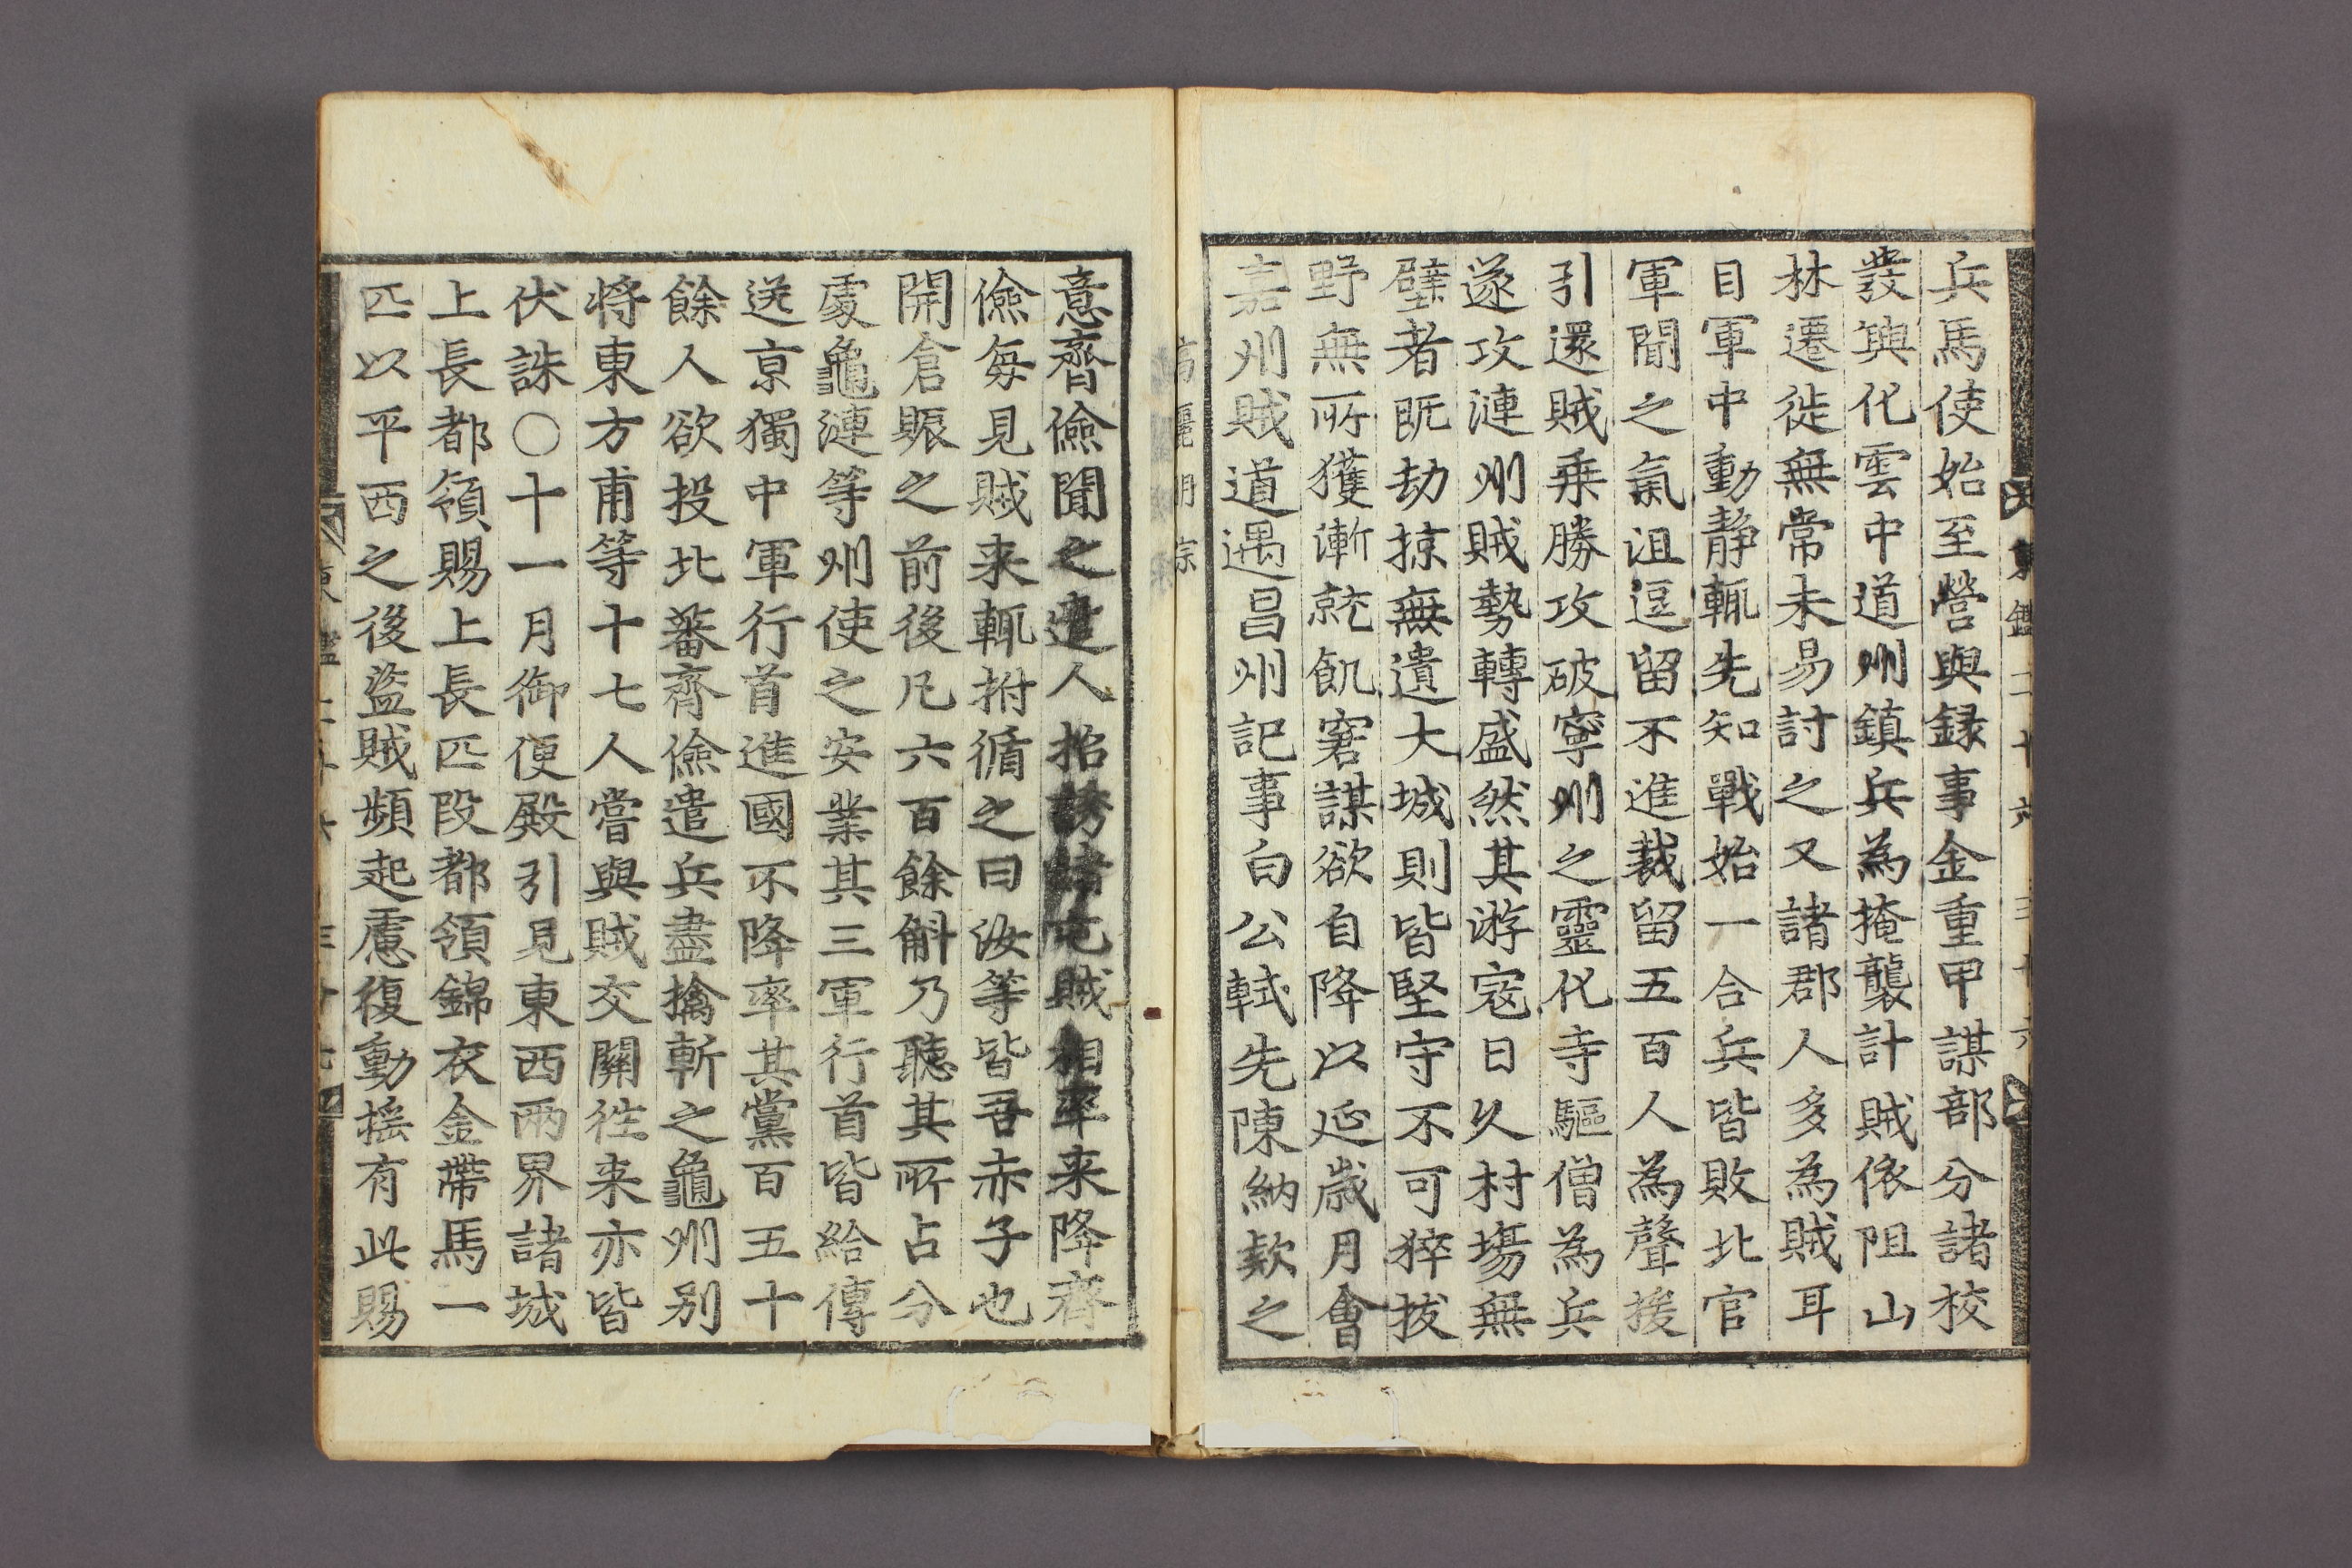 東鑑二十六 三十六
兵馬使始至營與録事金重甲謀部分諸校
發興化雲中道州鎮兵為掩襲計賊依阻山
林遷徙無常未易討之又諸郡人多為賊耳
目軍中動静輒先知戰始一合兵皆敗北官
軍聞之氣沮逗留不進裁留五百人為聲援
引還賊乗勝攻破寧州之靈化寺驅僧為兵
遂攻漣州賊勢轉盛然其游寇日久村塲無
壁者既劫掠無遺大城則皆堅守不可猝拔
野無所獲漸就飢窘謀欲自降以延歳月會
嘉州賊道遇昌州記事白公軾先陳納欵之
高麗明宗
意齊儉聞之遣人招誘諸屯賊相率来降齊
儉每見賊来輒拊循之曰汝等皆吾赤子也
開倉賑之前後凡六百餘斛乃聽其所占分
處龜漣等州使之安業其三軍行首皆給傳
送京獨中軍行首進國不降率其黨百五十
餘人欲投北蕃齊儉遣兵盡擒斬之龜州别
将東方甫等十七人嘗與賊交關徃来亦皆
伏誅〇十一月御便殿引見東西兩界諸城
上長都領賜上長匹段都領錦衣金帶馬一
匹以平西之後盜賊頻起慮復動揺有此賜